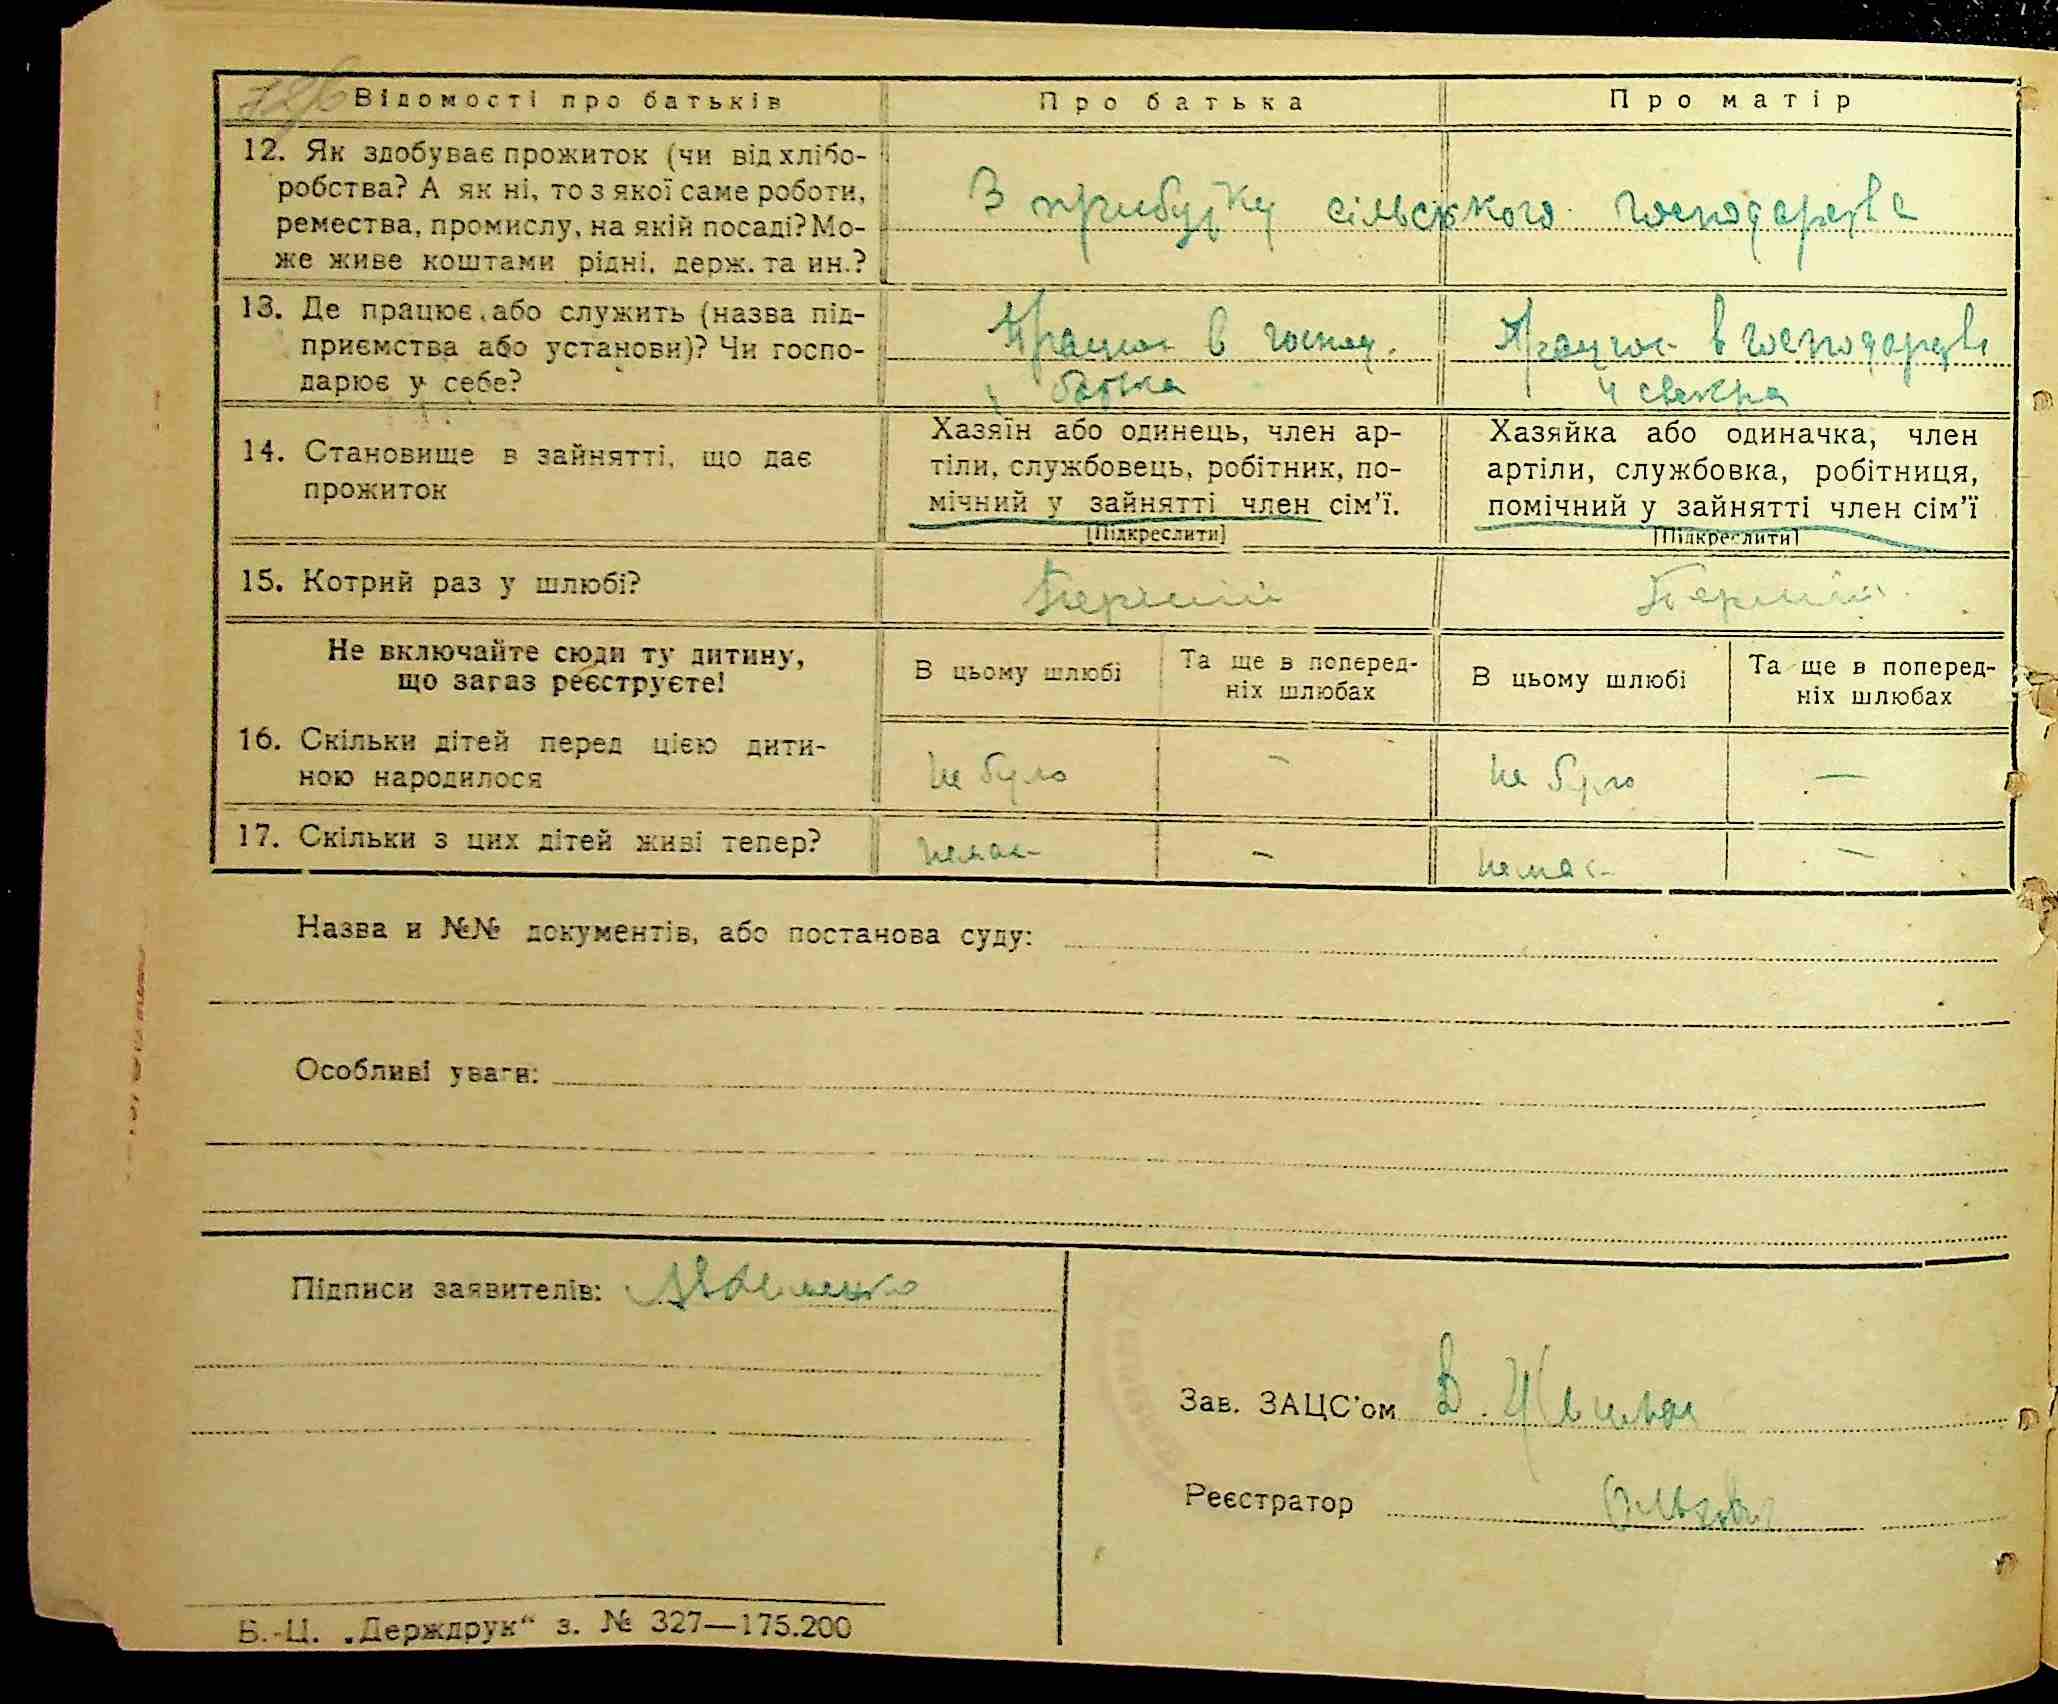 126
Відомості про батьків
Про батька
Про матір
12. Як здобуває прожиток (чи від хлібо-
робства? А як ні, то з якої саме роботи,
ремества, промислу, на якій посаді? Мо-
же живе коштами рідні, держ. та ин.?
З прибутку сільського господарства
13. Де працює або служить (назва під-
приємства або установи)? Чи госпо-
дарює у себе?
Працює в господ.
батька
Працює в господарстві
у свекра
14. Становище в зайнятті, що дає
прожиток
Хазяїн або одинець, член ар-
тіли, службовець, робітник, по-
мічний у зайнятті член сім'ї.
[Підкреслити]
Хазяйка або одиначка, член
артіли, службовка, робітниця,
помічний у зайнятті член сім'ї
[Підкреслити]
15. Котрий раз у шлюбі?
Перший
Перший
Не включайте сюди ту дитину,
що зараз реєструєте!
В цьому шлюбі
Та ще в поперед-
ніх шлюбах
В цьому шлюбі
Та ще в поперед-
ніх шлюбах
16. Скільки дітей перед цією дити-
ною народилося
не було
–
не було
—
17. Скільки з цих дітей живі тепер?
немає
–
немає
–
Назва и №№ документів, або постанова суду:
Особливі уваги:
Підписи заявителів:
Зав. ЗАЦС'ом В.
Реєстратор
Б.-Ц. „Держдрук“ з. № 327—175.200